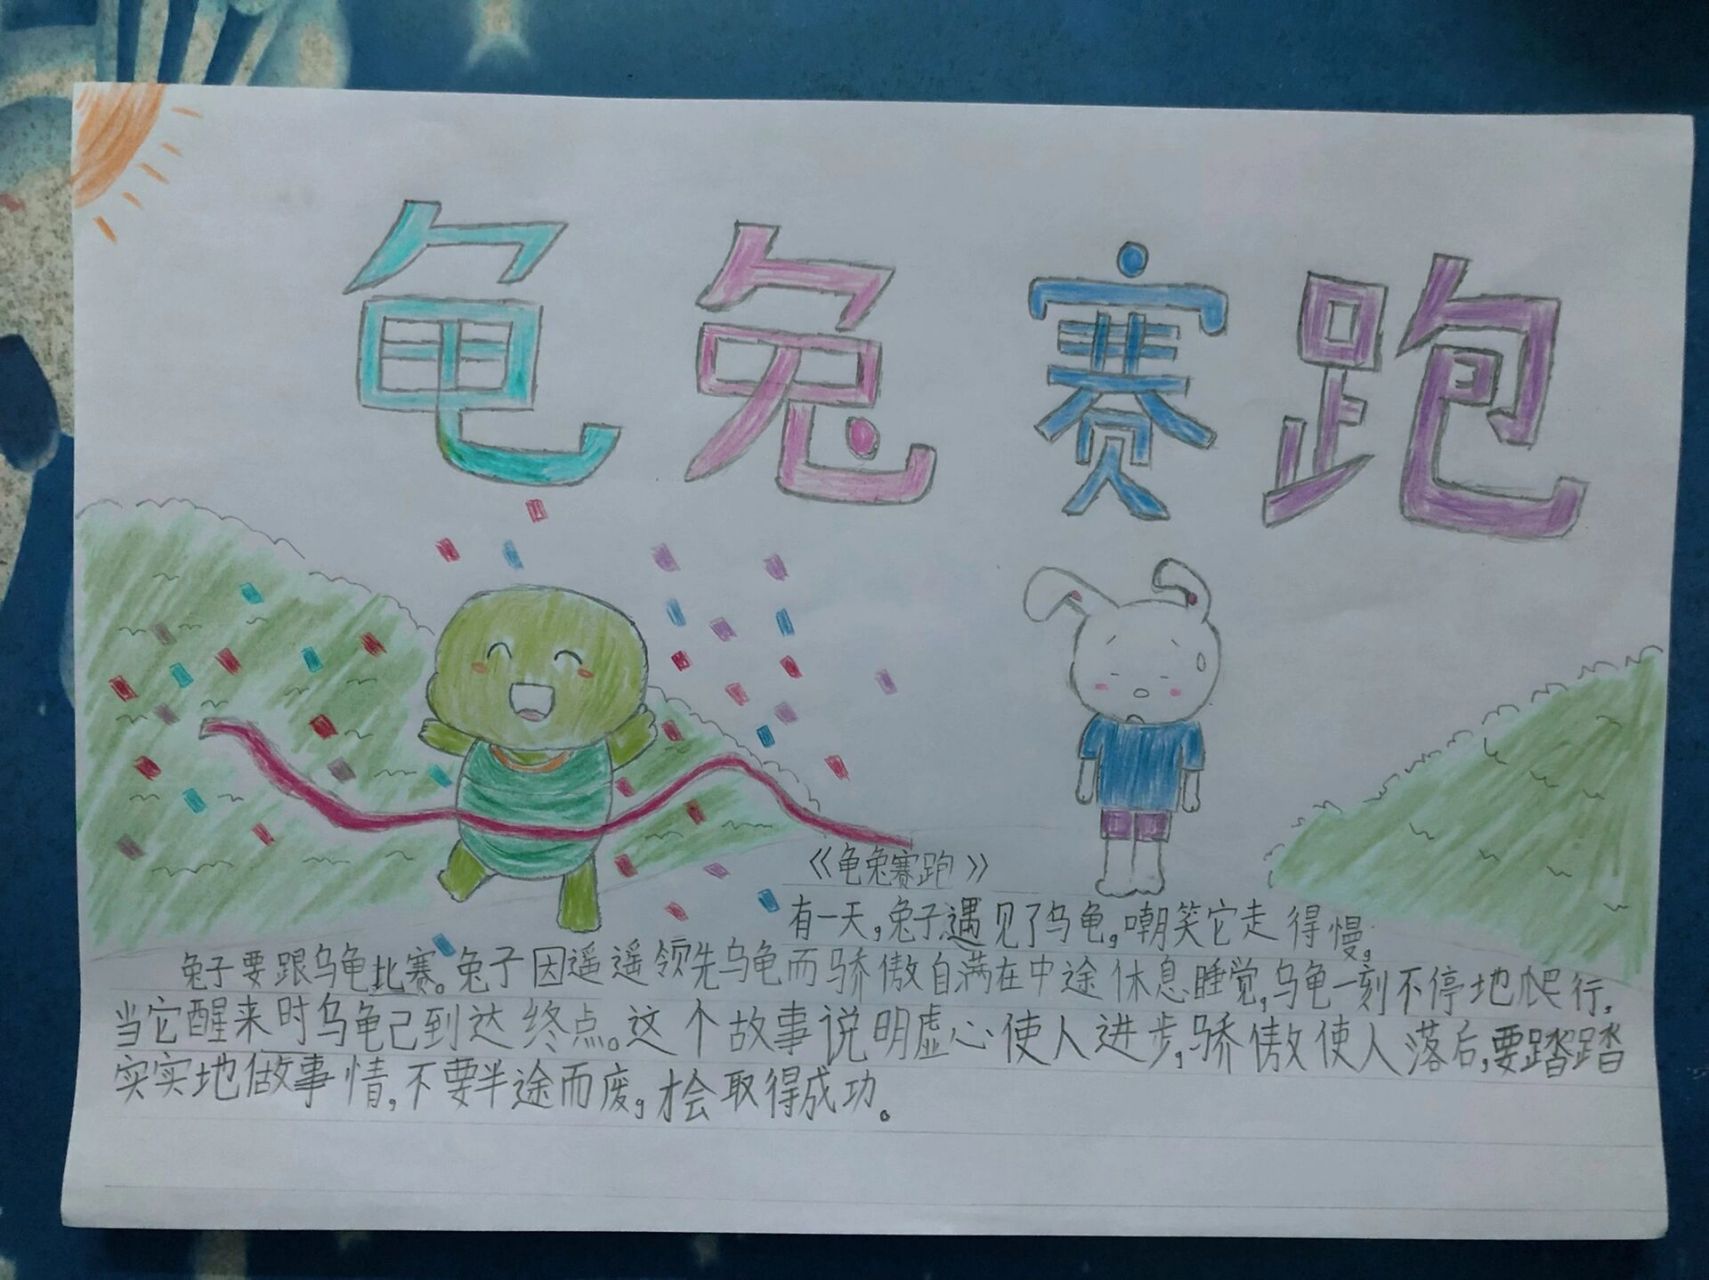 龟兔赛跑
《龟兔赛跑》
有一天,兔子遇见了乌龟,嘲笑它走得慢,
兔子要跟乌龟比赛。兔子因遥遥领先乌龟而骄傲自满在中途休息睡觉,乌龟一刻不停地爬行,
当它醒来时乌龟己到达终点。这个故事说明虚心使人进步,骄傲使人落后,要踏踏
实实地做事情,不要半途而废,才会取得成功。